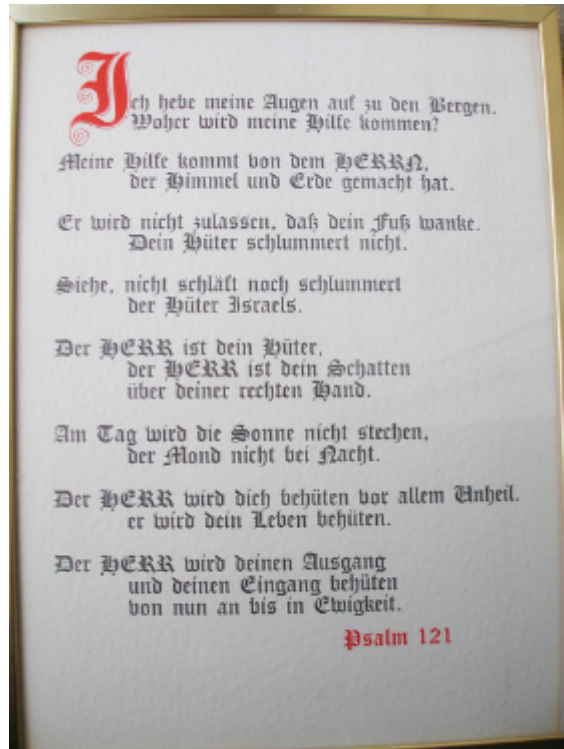 Ich hebe meine Augen auf zu den Bergen.
Woher wird meine Hilfe kommen?
Meine Hilfe kommt von dem HERRN,
der Himmel und Erde gemacht hat.
Er wird nicht zulassen, daß dein Fuß wanke.
Dein Hüter schlummert nicht.
Siehe, nicht schläft noch schlummert
der Hüter Israels.
Der HERR ist dein Hüter,
der HERR ist dein Schatten
über deiner rechten Hand.
Am Tag wird die Sonne nicht stechen,
der Mond nicht bei Nacht.
Der HERR wird dich behüten vor allem Unheil.
er wird dein Leben behüten.
Der HERR wird deinen Ausgang
und deinen Eingang behüten
von nun an bis in Ewigkeit.
Psalm 121